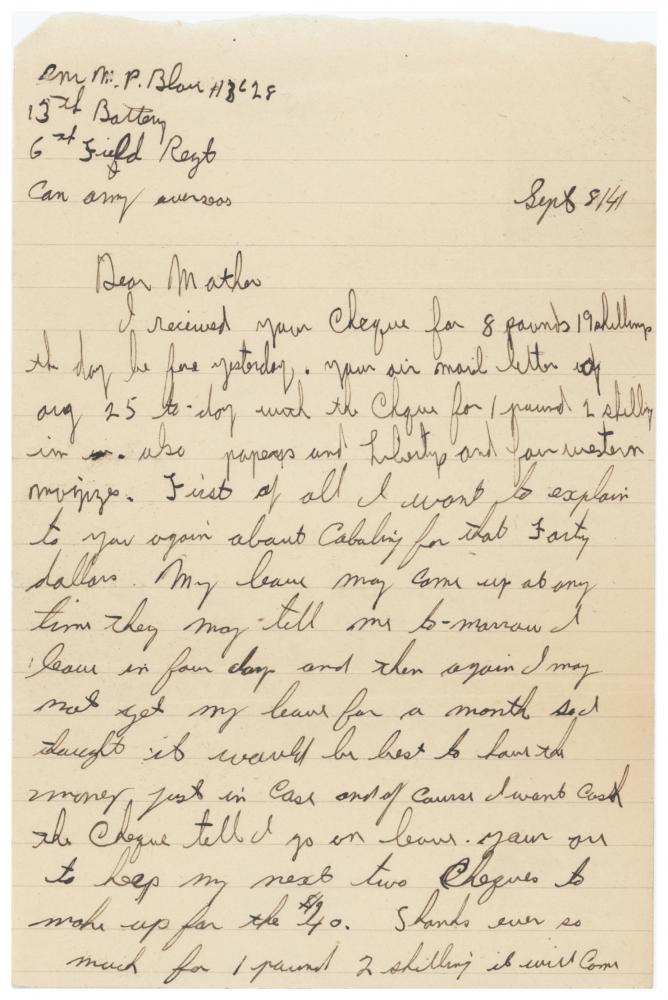 Gnr M. P. Blair H3628
13th Battery
6st Field Regt
Can army overseas
Sept 8/41
Dear Mother
I received your Cheque for 8 pounds 19 shillings
the day be fore yesterday. your air mail letter of
aug 25 to-day with the Chque for 1 pound 2 shilling
in also papers and Liberty and four western
First of all I want to explain
to you again about Cabaling for that Forty
dollars. My leave may come up at any
time they may tell me to-morrow I
leave in four days and then again I may
not get my leave for a month so I
thought it would be best to have the
money just in case and of course I want cash
the Cheque tell I go on leave. your are
to keep my next two Cheques to
make up for the $40. Thanks ever so
much for 1 pound 2 shilling it will come